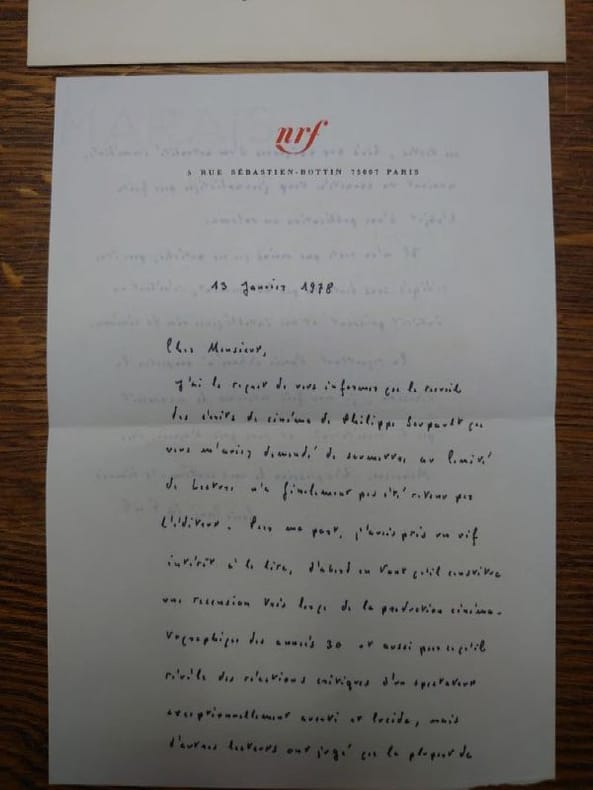 nrf
5 RUE SÉBASTIEN-BOTTIN 75007 PARIS
13 janvier 1978
Cher Monsieur,
J'ai le regret de vous informer que le recueil
des écrits de cinéma de Philippe Soupault que
vous m'aviez demandé de soumettre au Comité
de Lecture n'a finalement pas été retenu par
l'éditeur. Pour ma part, j'avais pris un vif
intérêt à le lire, d'abord en tant qu'il constitue
une recension très large de la production cinéma-
tographique des années 30 et aussi parce qu'il
révèle des réactions critiques d'un spectateur
exceptionnellement averti et lucide, mais
d'autres lecteurs ont jugé que la plupart de